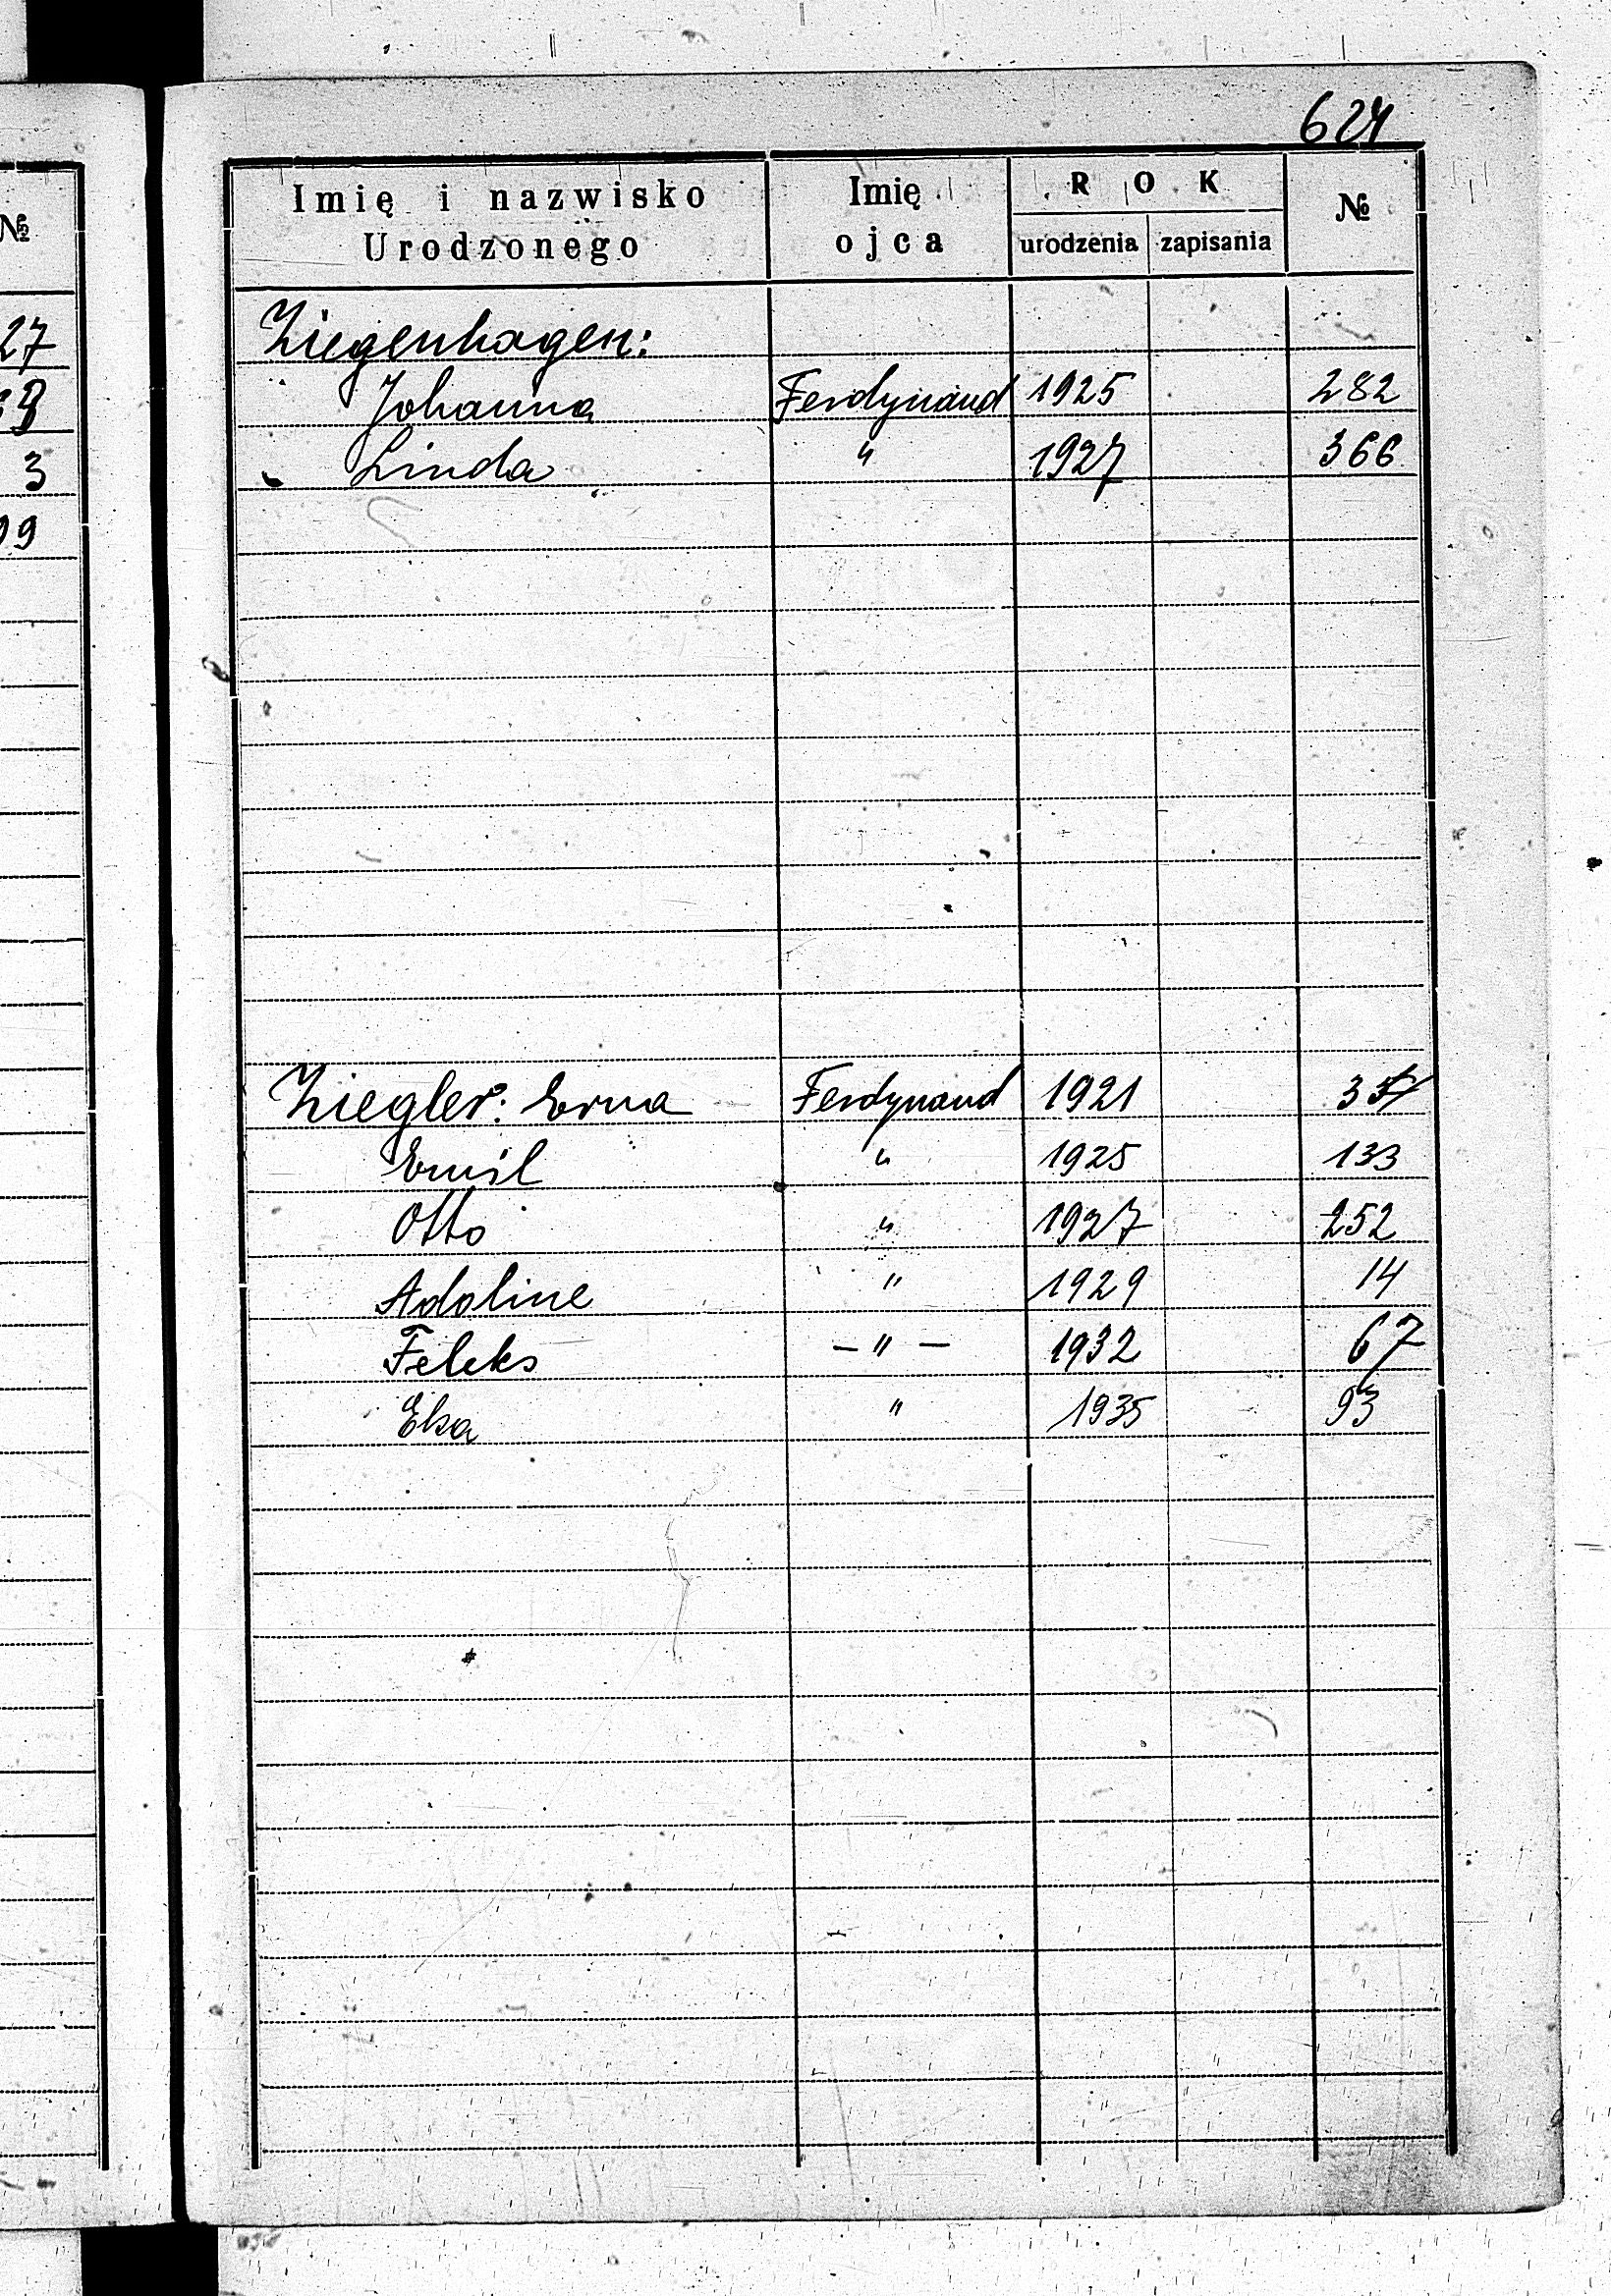 №
27
3
09
624
Imię i nazwisko Urodzonego
Imię ojca
ROK
urodzenia
zapisania
№
Ziegenhagen:
Johanna Ferdynand 1925 282
Linda " 1927 366
Ziegler: Erna Ferdynand 1921
Emil " 1925 133
Otto " 1927 252
Adoline " 1929 14
Feleks – " – 1932 67
Elsa " 1935 93